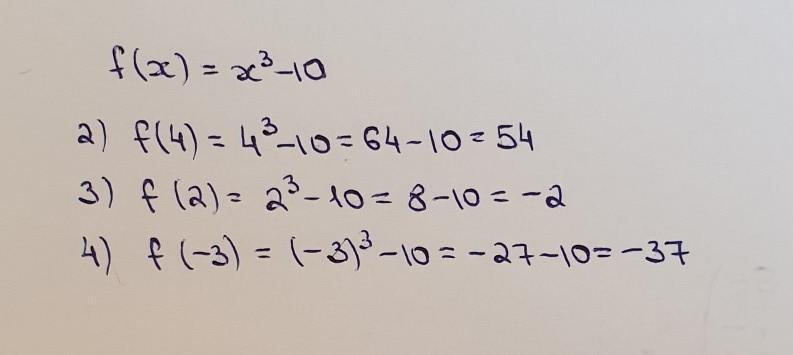 f(x) = x³-10
2) f(4) = 4³-10 = 64-10 = 54
3) f(2) = 2³-10 = 8-10 = -2
4) f(-3) = (-3)³-10 = -27-10 = -37